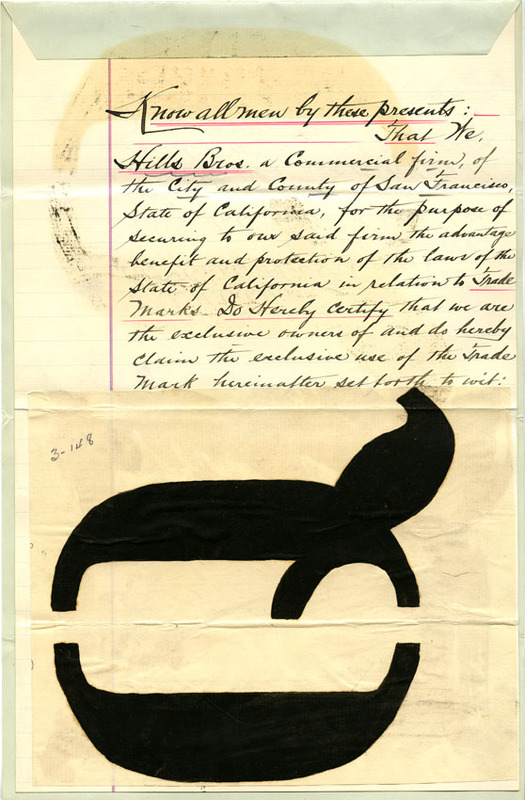 Know all men by these presents:
That We,
Hills Bros. a Commercial firm, of
the City and County of San Francisco,
State of California, for the purpose of
securing to our said firm the advantage
benefit and protection of the laws of the
State of California in relation to Trade
Marks Do Hereby certify that we are
the exclusive owners of and do hereby
claim the exclusive use of the Trade
Mark hereinafter set forth to wit:
3-148